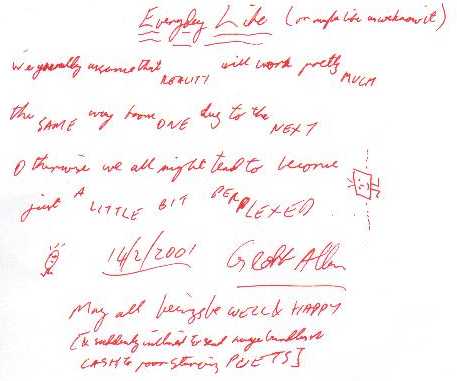 Everyday Life (or maybe life as we know it)
We generally assume that REALITY will work pretty MUCH
the SAME way from ONE day to the NEXT
Otherwise we all might tend to become
just A LITTLE BIT PERPLEXED
14/2/2001 Geoff Allen
May all beings be WELL & HAPPY
[& suddenly inclined to send huge bundles of
CASH to poor starving POETS]